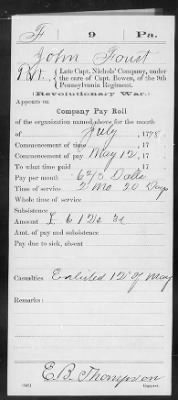 F 9 Pa.
John Foust
Pvt., Late Capt. Nichols' Company, under
the care of Capt. Bowen, of the 9th
Pennsylvania Regiment.
(Revolutionary War.)
Appears on
Company Pay Roll
of the organization named above for the month
of July , 1778.
Commencement of time , 17 .
Commencement of pay May 12, , 17 .
To what time paid , 17 .
Pay per month 6 2/3 Dolls
Time of service 2 Mo 20 Days
Whole time of service
Subsistence
Amount
Amt. of pay and subsistence
Pay due to sick, absent
Casualties Enlisted 12th of May
Remarks:
E.B. Thompson
Copyist.